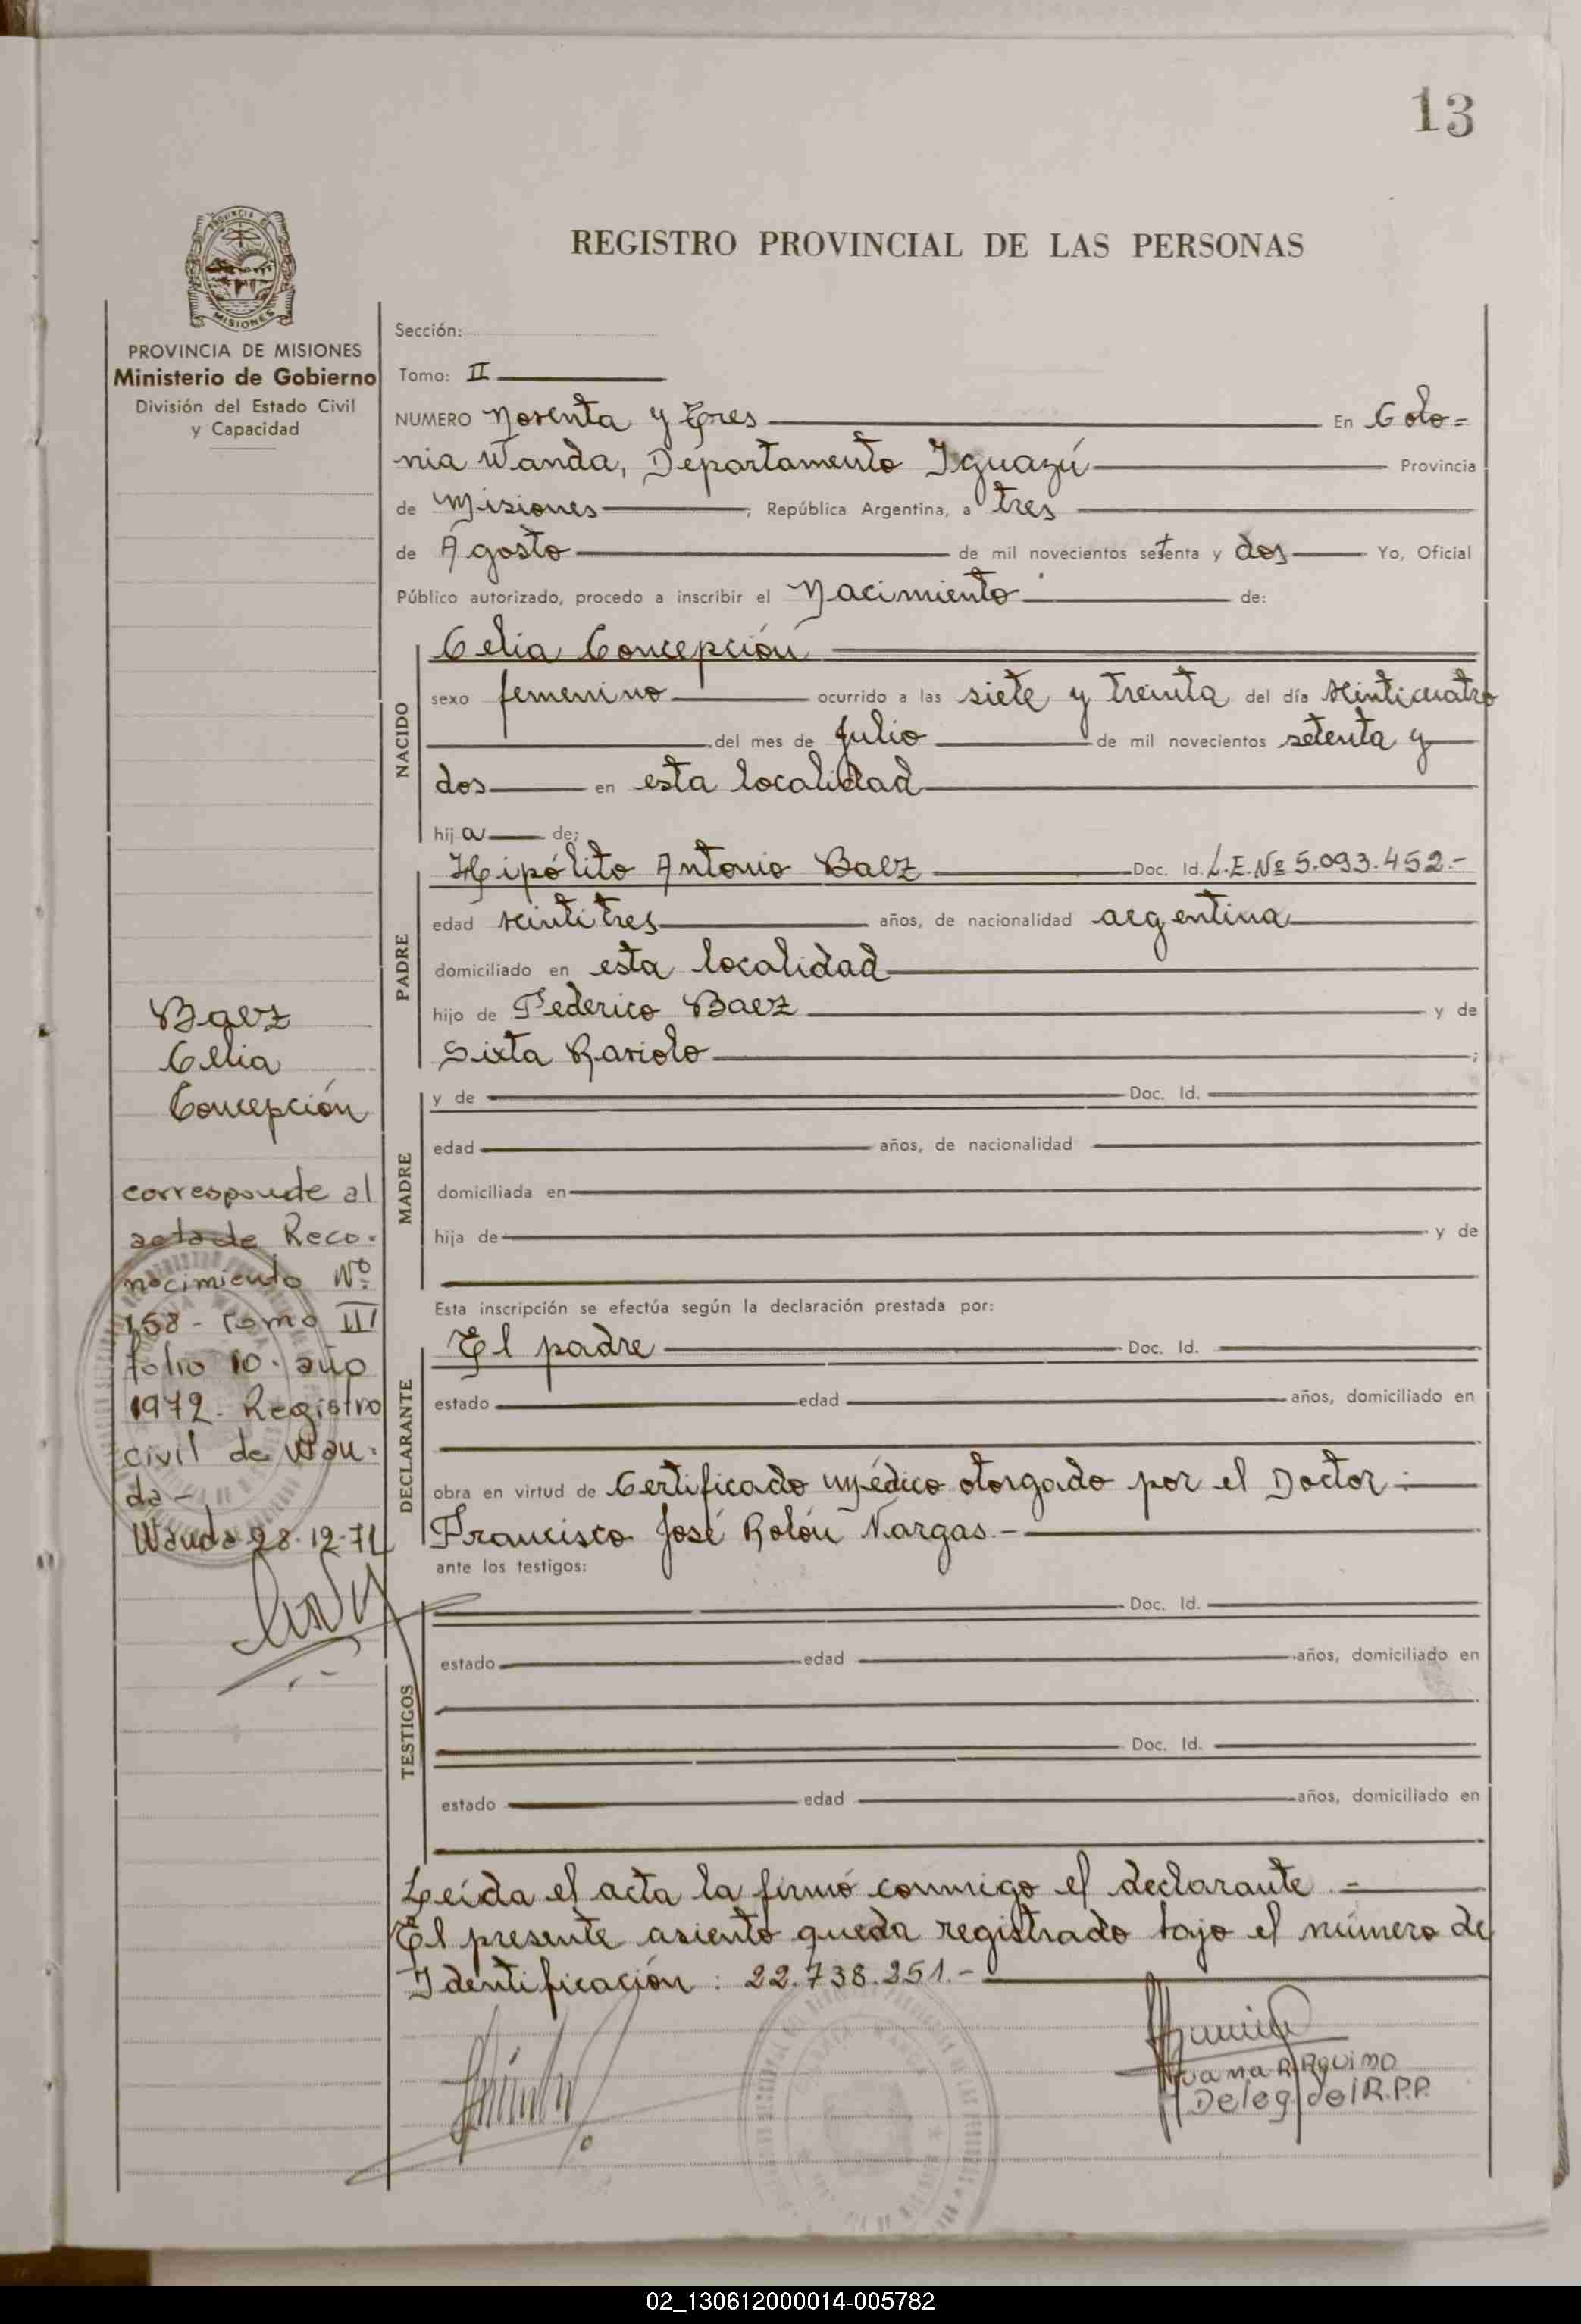 13
REGISTRO PROVINCIAL DE LAS PERSONAS
PROVINCIA DE
MISIONES
PROVINCIA DE MISIONES
Ministerio de Gobierno
División del Estado Civil
y Capacidad
Baez
Celia
Concepción
corresponde al
acta de Reco-
nocimiento Nº
158 - Tomo III
folio 10. año
1972. Registro
civil de Wan-
da -
Wanda 28-12-72
Sección:
Tomo: II
NUMERO Noventa y Tres En Colo=
nia Wanda, Departamento Iguazú Provincia
de Misiones, República Argentina, a tres
de Agosto de mil novecientos setenta y dos Yo, Oficial
Público autorizado, procedo a inscribir el Nacimiento de:
NACIDO
Celia Concepción
sexo femenino ocurrido a las siete y treinta del día veinticuatro
del mes de Julio de mil novecientos setenta y
dos en esta localidad
hija de:
PADRE
Hipólito Antonio Baez Doc. Id. L.E. Nº 5.093.452.-
edad veintitres años, de nacionalidad argentina
domiciliado en esta localidad
hijo de Federico Baez y de
Sixta Raviolo ;
MADRE
y de Doc. Id.
edad años, de nacionalidad
domiciliada en
hija de y de
Esta inscripción se efectúa según la declaración prestada por:
DECLARANTE
El padre Doc. Id.
estado edad años, domiciliado en
obra en virtud de Certificado Médico otorgado por el Doctor :
Francisco José Rolón Vargas.-
ante los testigos:
TESTIGOS
Doc. Id.
estado edad años, domiciliado en
Doc. Id.
estado edad años, domiciliado en
Leída el acta la firmó conmigo el declarante .=
El presente asiento queda registrado bajo el número de
Identificación : 22.738.251.-
Juana R. Aquino
Deleg. del R.P.P.
02_130612000014-005782